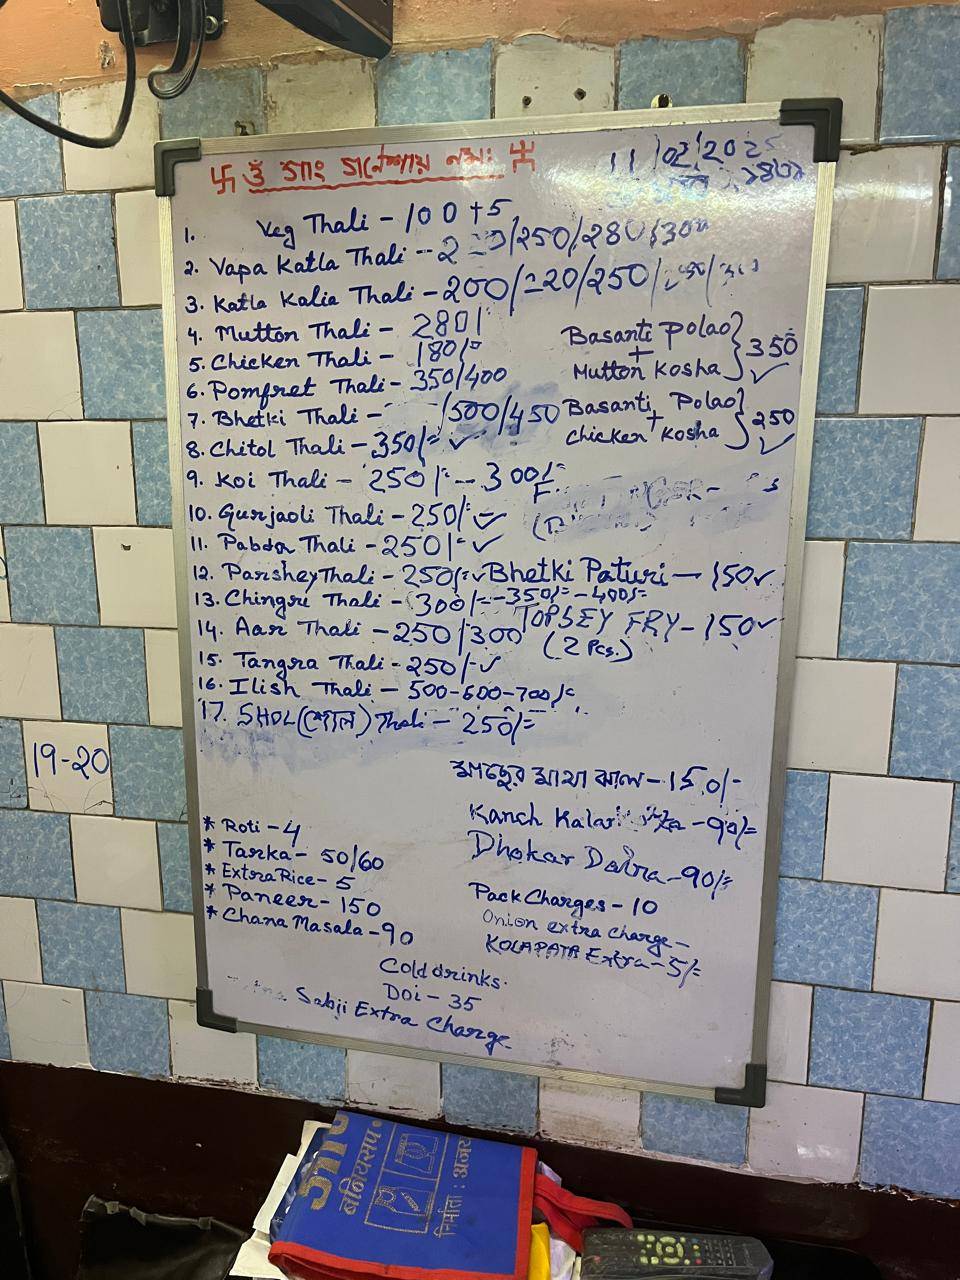 卐 ওঁ গাং গনেশায় নমঃ 卐
11/02/2025
1. Veg Thali - 100 +5
2. Vapa Katla Thali -- /250/280/300
3. Katla Kalia Thali - 200/220/250/
4. Mutton Thali - 280/
5. Chicken Thali - 180/=
6. Pomfret Thali - 350/400
7. Bhetki Thali - /500/450
8. Chitol Thali - 350/= ✓
9. Koi Thali - 250/= -- 300/=
10. Gurjaoli Thali - 250/= ✓
11. Pabda Thali - 250/- ✓
12. Parshey Thali - 250/= ✓
13. Chingri Thali - 300/- -350/= -400/=
14. Aar Thali - 250/300
15. Tangra Thali - 250/- ✓
16. Ilish Thali - 500-600-700/=
17. SHOL (শোল) Thali - 250/=
Basanti Polao
+
Mutton Kosha } 350 ✓
Basanti Polao
+
Chicken Kosha } 250 ✓
Bhetki Paturi - 150 ✓
TOPSEY FRY - 150 ✓
(2 Pcs.)
মাছের মাথা ঝাল - 150/-
Kanch Kalar - 90/=
Dhokar Dalna - 90/=
* Roti - 4
* Tarka - 50/60
* Extra Rice - 5
* Paneer - 150
* Chana Masala - 90
Pack Charges - 10
Onion extra charge -
KOLAPATA Extra - 5/=
Cold drinks.
Doi - 35
Sabji Extra Charge
19-20
बनियसप
निर्माता :